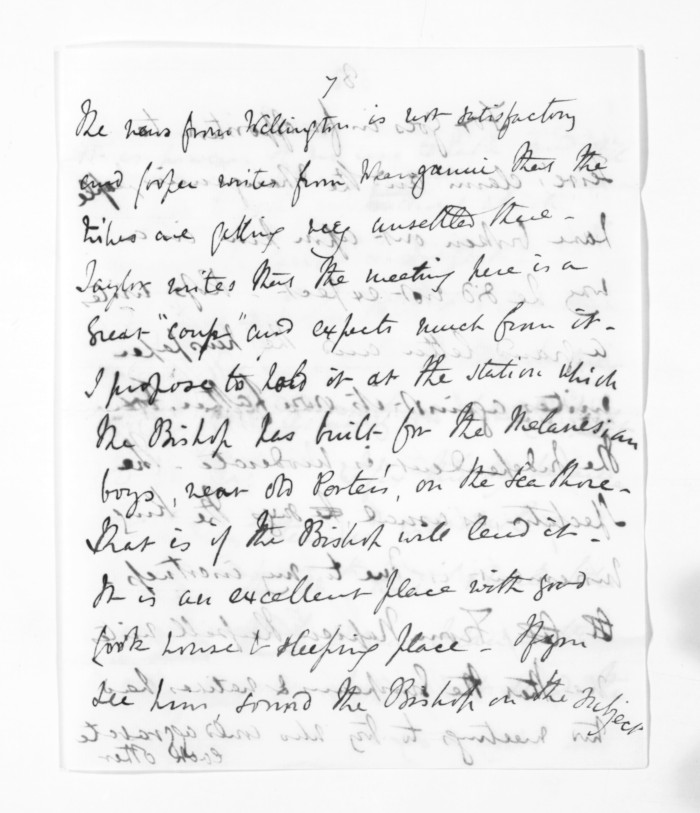 7
The news from Wellington is not satisfactory
and Cooper writes from Wanganui that the
tribes are getting very unsettled there -
Taylor writes that the meeting here is a
great "coup" and expects much from it -
I propose to hold it at the station which
the Bishop has built for the Melanesian
boys, near old Porter's, on the Sea Shore -
that is if the Bishop will lend it -
It is an excellent place with good
Cook house & sleeping place - If you
see him sound the Bishop on the subject